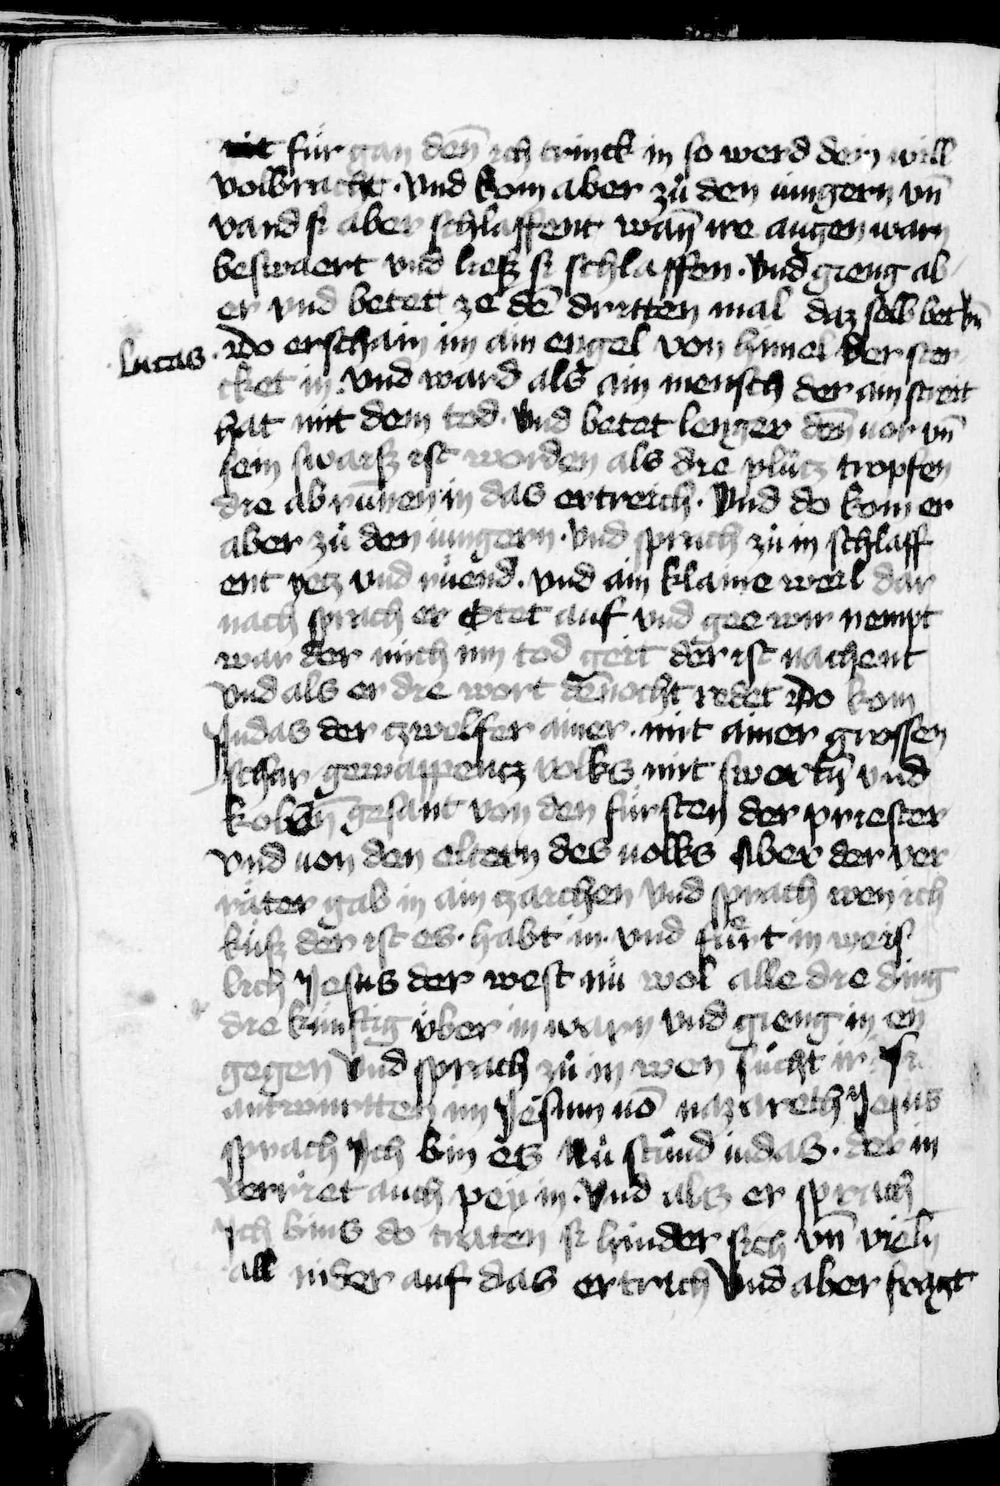 nit für gan den̄ ich trinck in so werd dein will
volbracht · Vnd kom aber zů den iungern vn̄
vand si aber schlaffent wan̄ ire augen warn
beswaert vnd liesz si schlaffen · Vnd gieng ab
er vnd betet ze dē dritten mal daz selb bet
Lucas · Do erschain im ain engel von himel der ster
cket in · Vnd ward als ain mensch der ain streit
hat mit dem tod · Vnd betet lenger den̄ uor vn̄
sein swaisz ist worden als die plůtz tropfen
die ab runnen in das ertreich · Vnd do kom er
aber zů den iungern · Vnd sprach zů in schlaff
ent yetz vnd růend · vnd ain klaine weil dar
nach sprach er Stet auf vnd gee wir nempt
war der mich inn tod geit der ist nachent
Vnd als er die wort den̄ocht redet Do kom
Judas der czwelfer ainer · mit ainer grossen
schar gewappentz volks mit swertn̄ vnd
kolbn̄ gesant von den fürsten der priester
Vnd uon den eltern des uolks Aber der ver
räter gab in ain czaichen Vnd sprach wen ich
küsz der ist es · habt in · vnd fürt in weis
lich Jesus der west nů wol alle die ding
die künftig über in warn vnd gieng in en
gegen Vnd sprach zů in wen sůcht ir · si
antwurtten im Jesum uō nazareth Jesus
sprach Ich bin es Nů stůnd iudas · der in
verriet auch pey in · Vnd als er sprach
Ich bins do traten si hinder sich vn̄ vieln
all nider auf das ertrich Vnd aber fragt